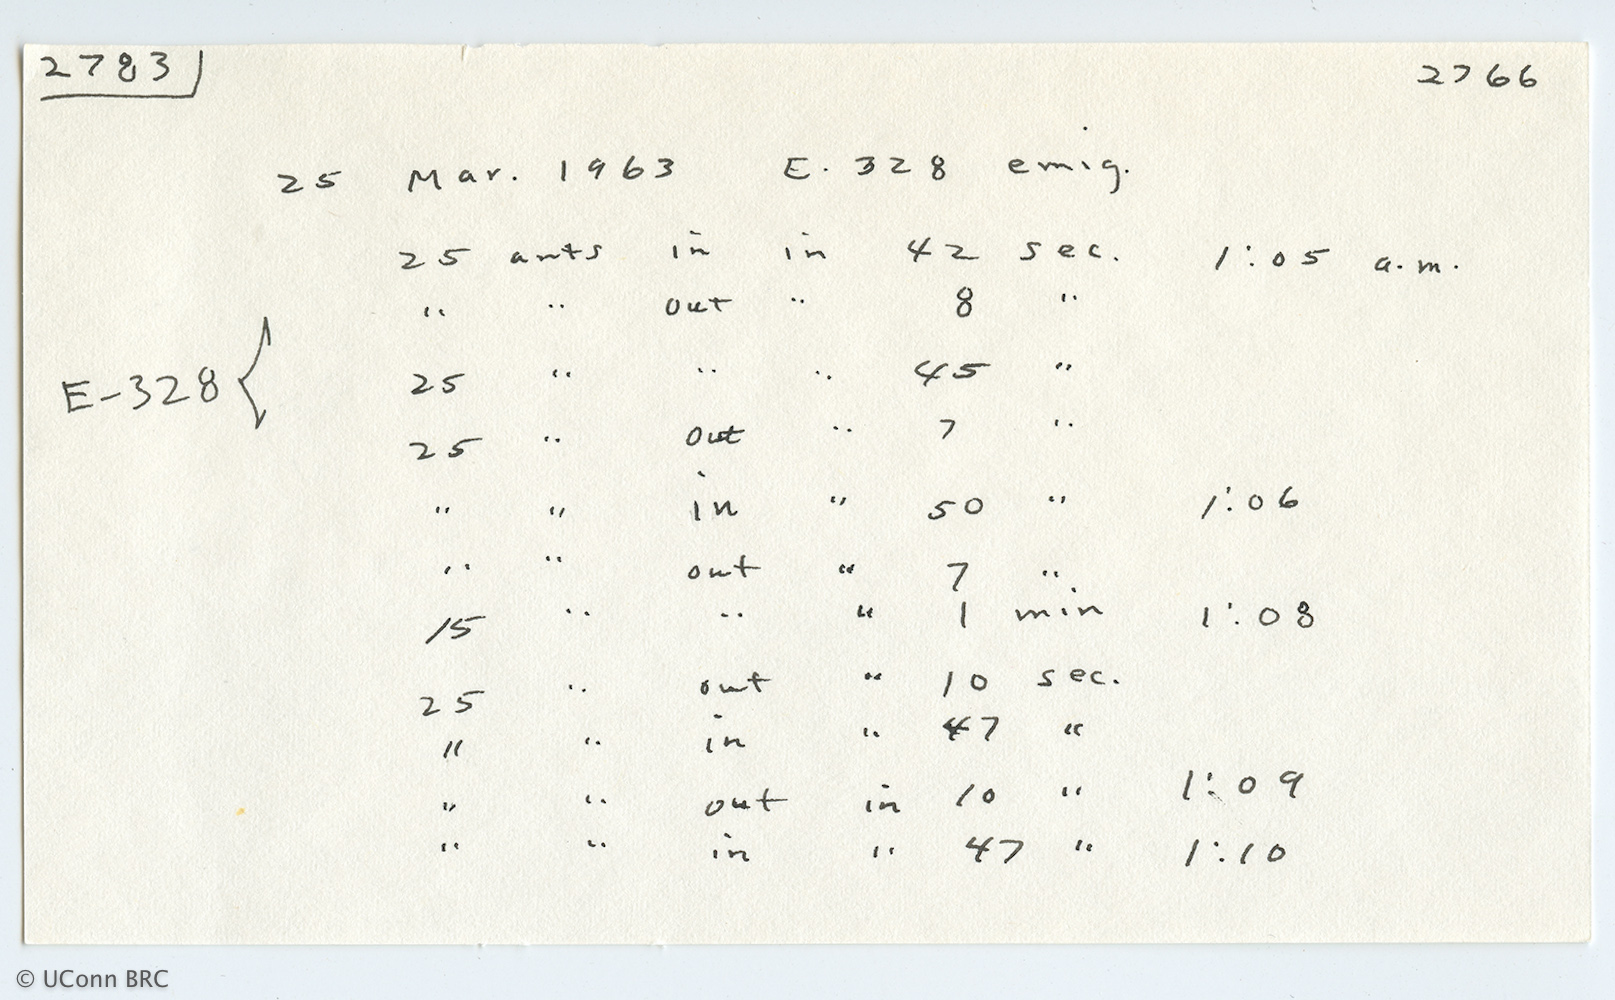 2783 2766
25 Mar. 1963 E. 328 emig.
25 ants in in 42 sec. 1:05 a.m.
" " out " 8 "
E-328 { 25 " " " 45 "
25 " out " 7 "
" " in " 50 " 1:06
" " out " 7 "
15 " " " 1 min 1:08
25 " out " 10 sec.
" " in " 47 "
" " out in 10 " 1:09
" " in " 47 " 1:10
© UConn BRC